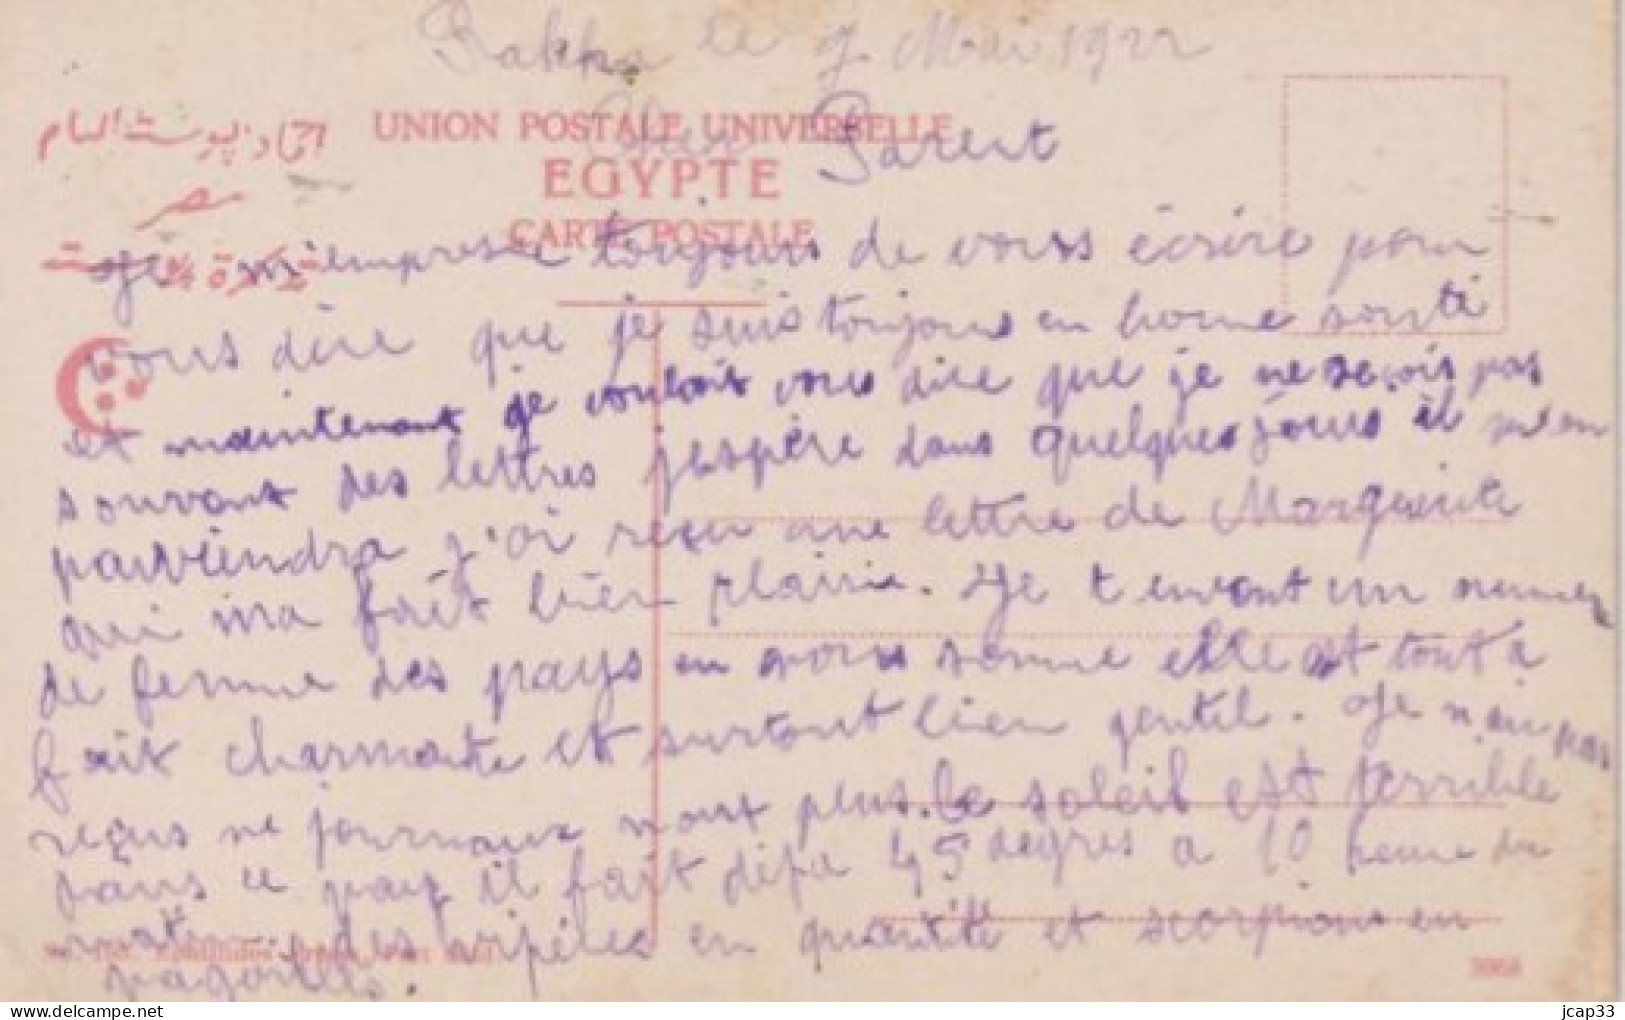 Rakka le 9 Mai 1922
اتحاد پوستە العام
UNION POSTALE UNIVERSELLE
Cher Parent
مصر
EGYPTE
CARTE POSTALE
Je m'empresse toujours de vous écrire pour
vous dire que je suis toujours en bonne santé
et maintenant je voulait vous dire que je ne reçois pas
souvant des lettres j'espère dans quelques jours il m'en
parviendra j'ai reçu une lettre de Marguerite
qui ma fait bien plaisir. Je t'envont un
de femme des pays en somme elle est tout à
fait charmante et surtout bien gentil. Je n'ai pas
reçus ne journaux non plus. le soleil est terrible
dans ce pays il fait dépa 45 degres a 10 heure du
matin. des vipéles en quantité et scorpions en
pagailles.
Port Said
jcap33